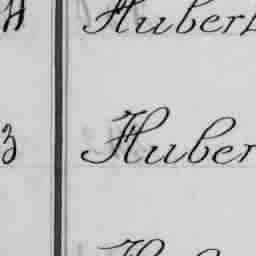 H Hubert
3 Huber